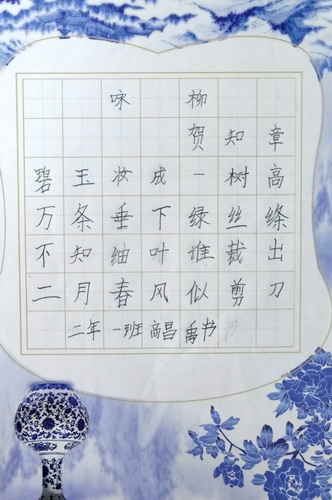 咏 柳
贺 知 章
碧 玉 妆 成 一 树 高
万 条 垂 下 绿 丝 绦
不 知 细 叶 谁 裁 出
二 月 春 风 似 剪 刀
二年 一班 高昌 禹书